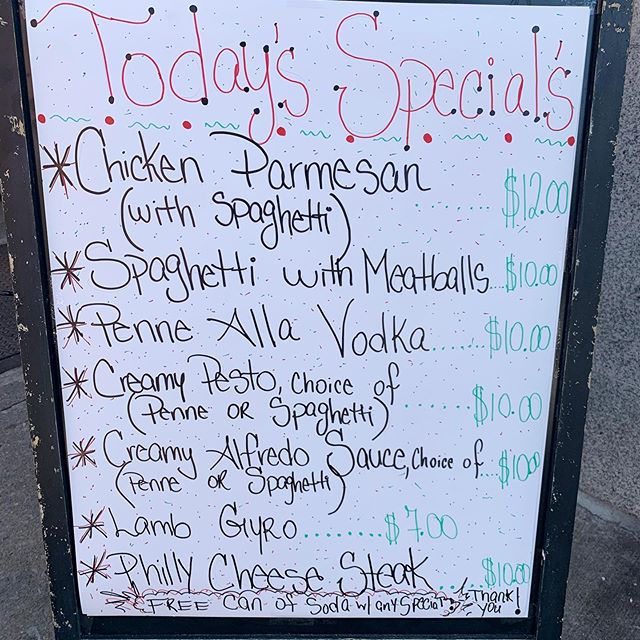 Today's Special's
*Chicken Parmesan
(with Spaghetti) ..... $12.00
*Spaghetti with Meatballs... $10.00
*Penne Alla Vodka....... $10.00
*Creamy Pesto, choice of
(Penne OR Spaghetti) ...... $10.00
*Creamy Alfredo Sauce, choice of ... $10.00
(Penne OR Spaghetti)
*Lamb Gyro........ $7.00
*Philly Cheese Steak.... $10.00
*FREE can of Soda w/ any Special* Thank
You!